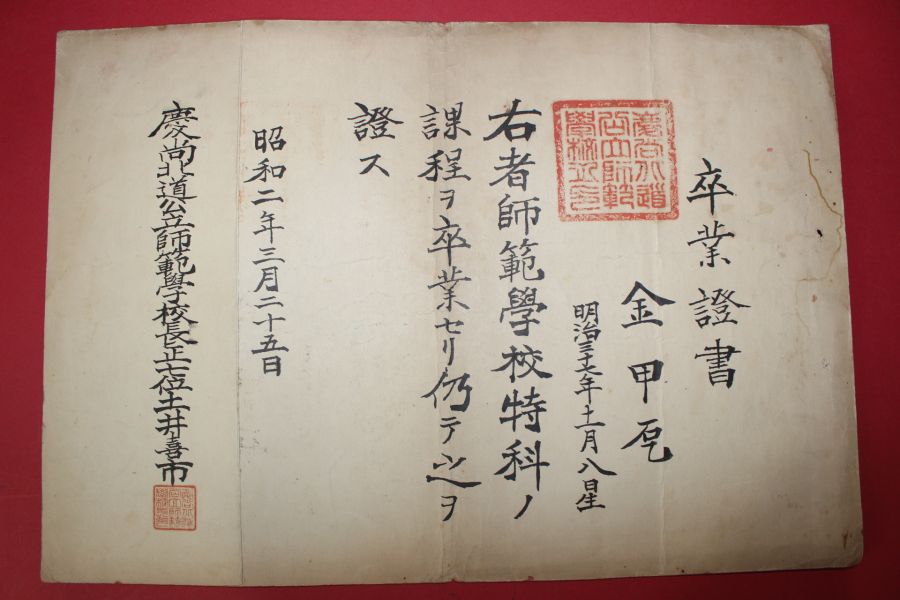 卒業證書
金甲乭
明治三十七年十一月八日生
慶尚北道
公立師範
學校之印
右者師範學校特科ノ
課程ヲ卒業セリ仍テ之ヲ
證ス
昭和二年三月二十五日
慶尚北道公立師範學校長正七位土井喜市